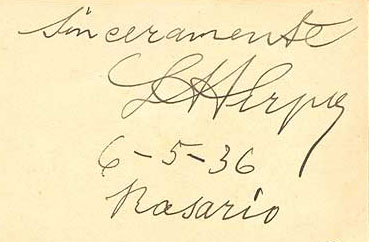 Sinceramente
6-5-36
Rosario